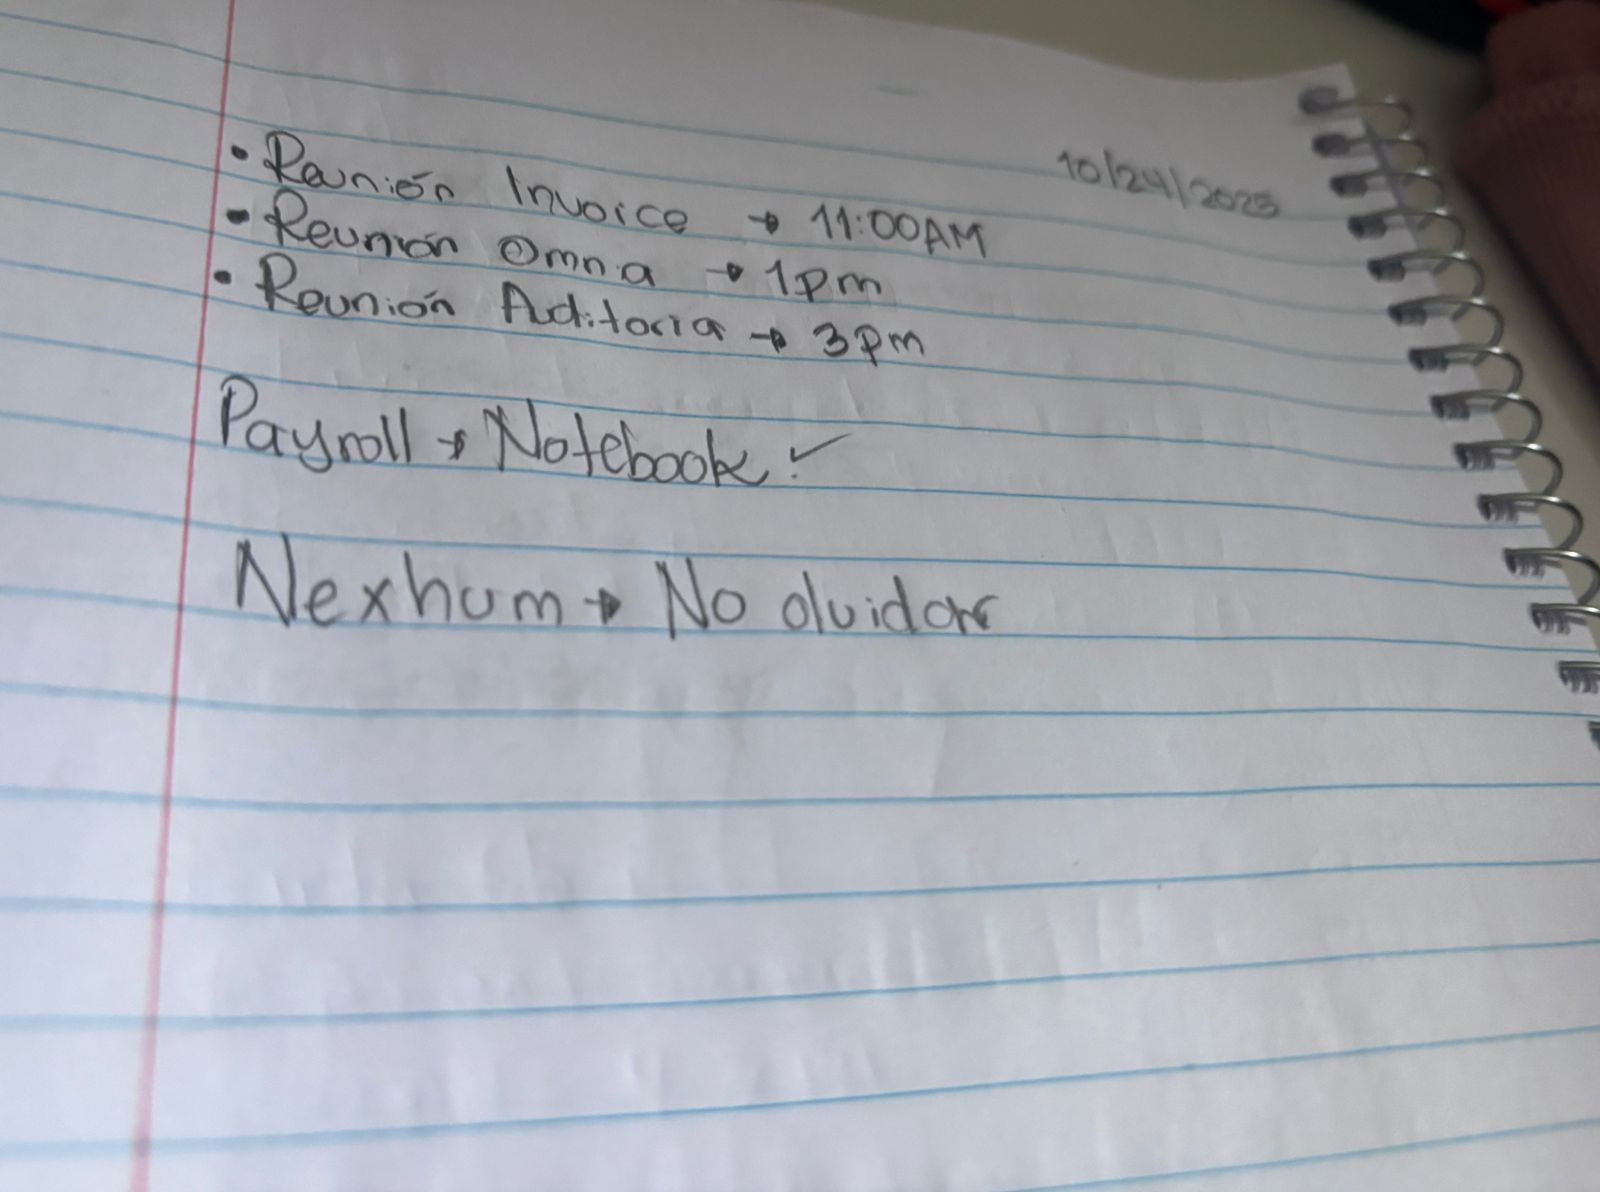 10/24/2025
• Reunión Invoice → 11:00AM
• Reunión Omnia → 1pm
• Reunión Auditoria → 3pm
Payroll → Notebook. ✓
Nexhum → No olvidar